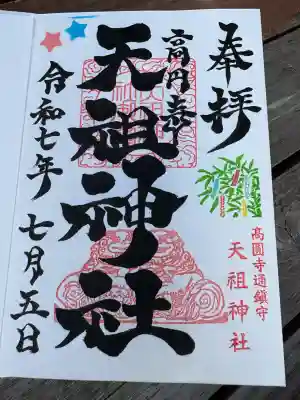 奉拝
高円寺
天祖神社
令和七年 七月五日
高圓寺通鎮守
天祖神社